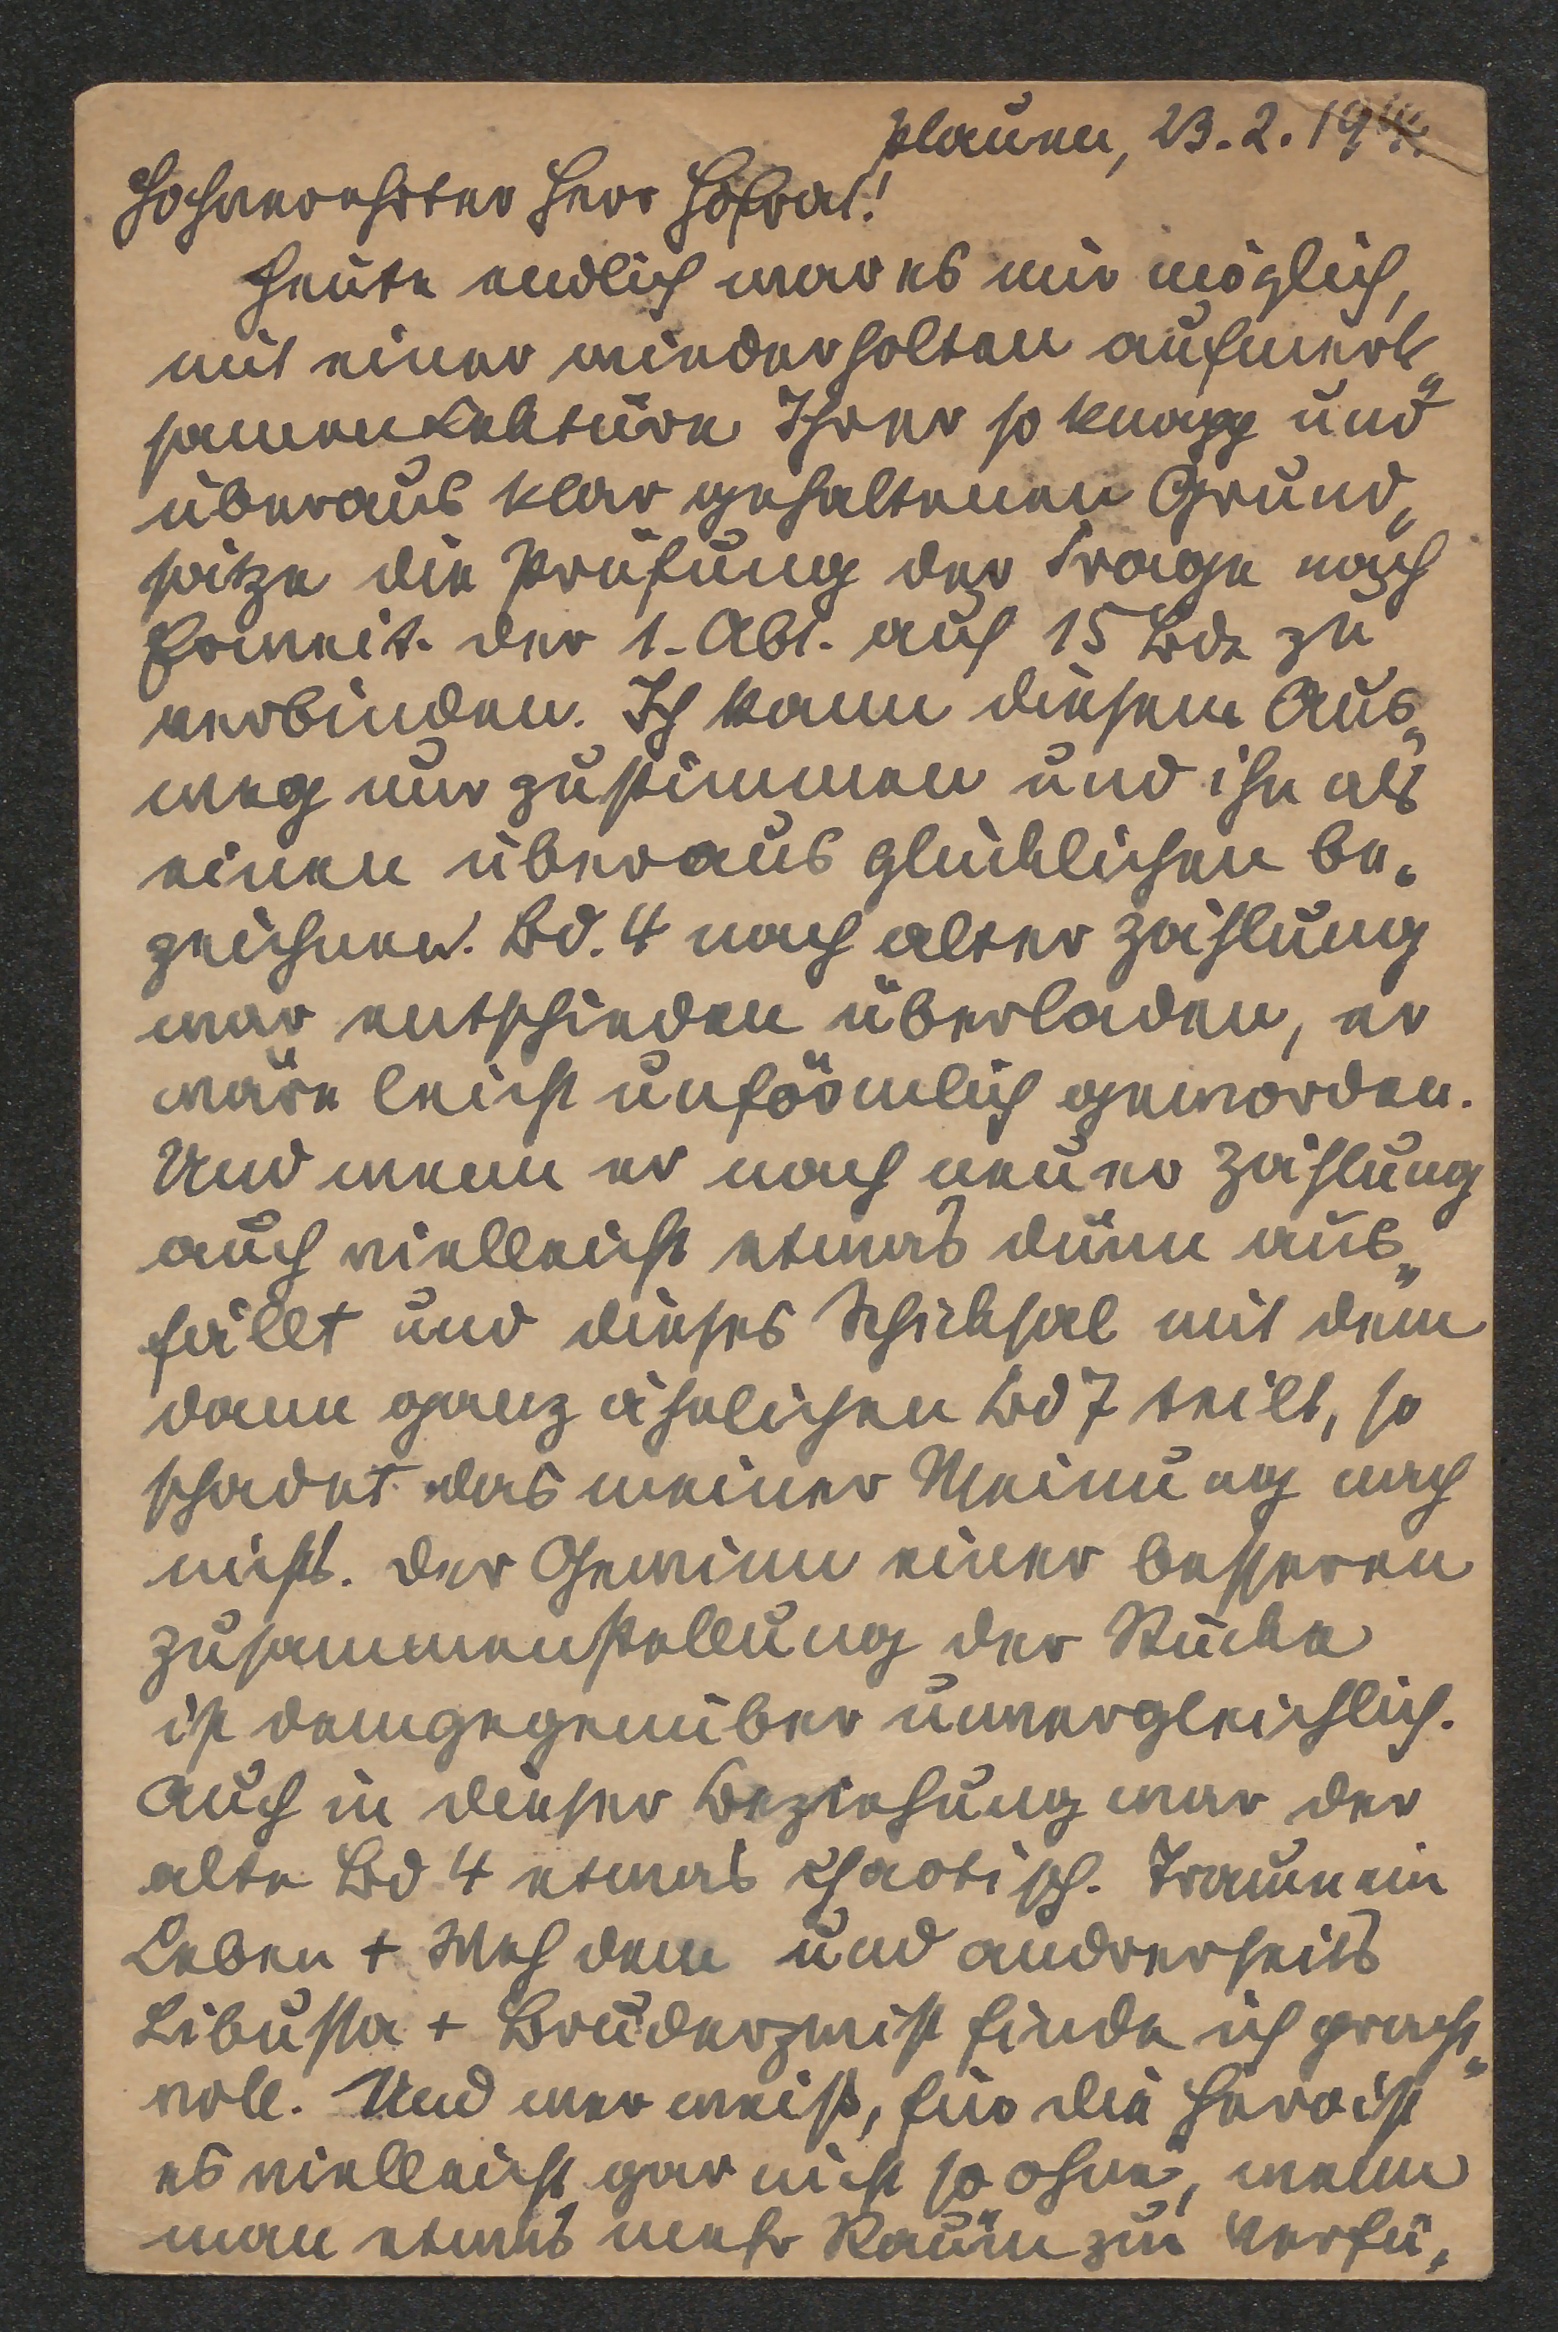 Plauen, 23. 2. 194
Hochverehrter Herr Hofrat!
Heute endlich war es mir möglich,
mit einer wiederholten aufmerk„
samen Lektüre Ihrer so knapp und
überaus klar gehaltenen Grund„
sätze die Prüfung der Frage nach
Erweit. der 1. Abt. auf 15 Bde zu
verbinden. Ich kann diesem Aus„
weg nur zustimmen und ihn als
einen überaus glücklichen be„
zeichnen. Bd. 4 nach alter Zählung
war entschieden überladen, er
wäre leicht unförmlich geworden.
Und wenn er nach neuer Zählung
auch vielleicht etwas dünn aus„
fällt und dieses Schicksal mit dem
dann ganz ähnlichen Bd 7 teilt, so
schadet das meiner Meinung nach
nichts. Der Gewinn einer besseren
Zusammenstellung der Stücke
ist demgegenüber unvergleichlich.
Auch in dieser Beziehung war der
alte Bd 4 etwas chaotisch. Traum ein
Leben + Weh dem und andrerseits
Libussa + Bruderzwist finde ich pracht„
voll. Und wer weiß, für die Hero ist
es vielleicht gar nicht so ohne, wenn
man etwas mehr Raum zur Verfü„